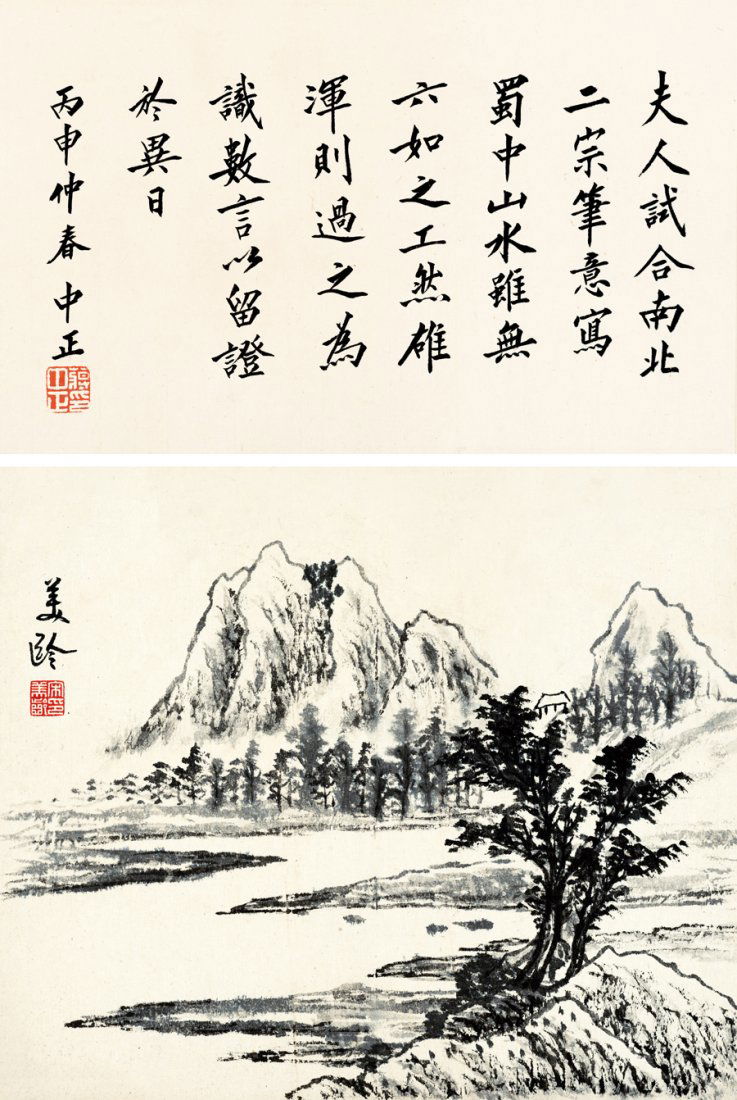 夫人試合南北
二宗筆意寫
蜀中山水雖無
六如之工然雄
渾則過之為
識數言以留證
於異日
丙申仲春中正
蔣中正印
美齡
宋美齡印